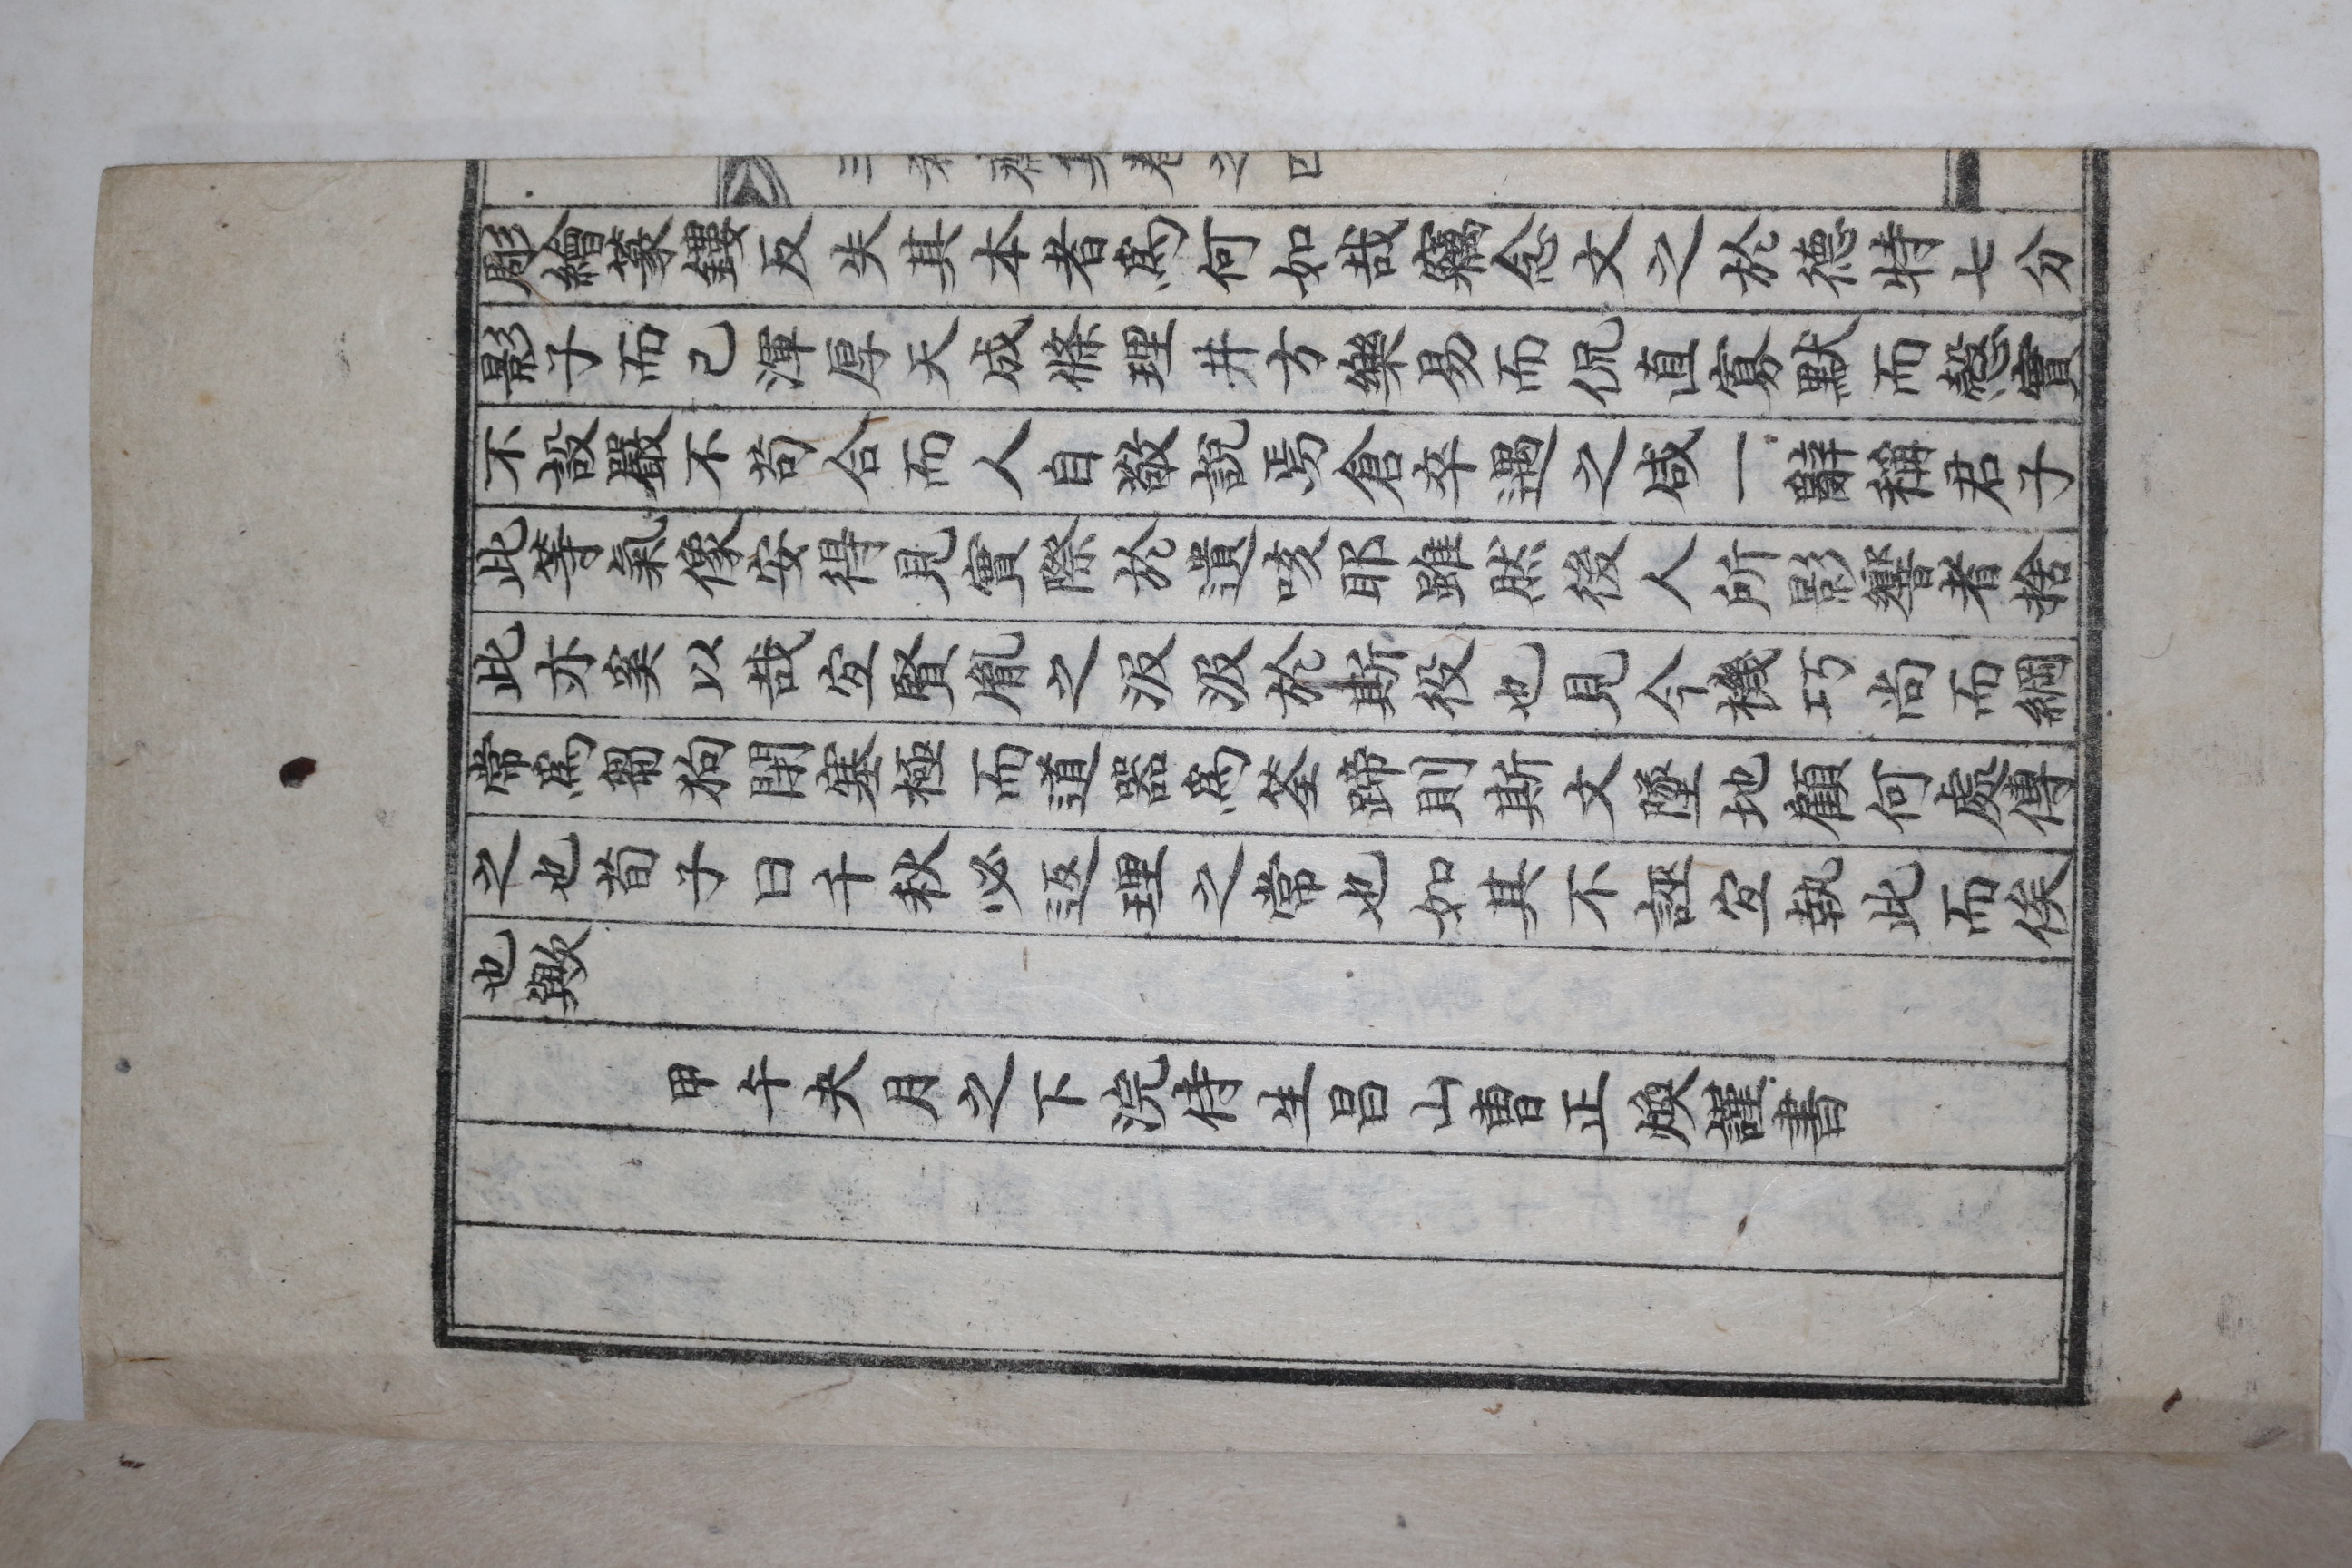 彫繪篆鏤反失其本者爲何如哉竊念文之於德特七分
影子而已渾厚天成條理井方樂易而侃直寡默而慤實
不設嚴不苟合而人自敬說焉倉卒遇之咸一辭稱君子
此等氣像安得見實際於遺咳耶雖然後人所影響者捨
此亦奚以哉宜賢胤之汲汲於斯役也見今機巧尚而綱
常爲芻狗開塞極而道器爲筌蹄則斯文墜地顧何處傳
之也荀子曰千秋必返理之常也如其不誣宜執此而俟
也歟
甲午夬月之下浣侍生昌山曺正煥謹書